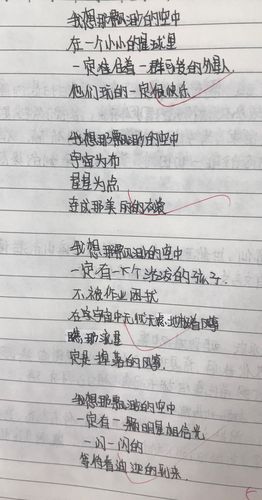 我想那飘渺的空中
在一个小小的星球里
一定住着一群可爱的外星人
他们玩的一定很快乐
我想那飘渺的空中
宇宙为布
星星为点
变成那美丽的衣裳
我想那飘渺的空中
一定有一个个活泼的孩子
不被作业困扰
在宇宙中无忧无虑地放着风筝
瞧那流星
定是掉落的风筝
我想那飘渺的空中
一定有一颗明星相信光
一闪一闪的
等待着迪迦的到来